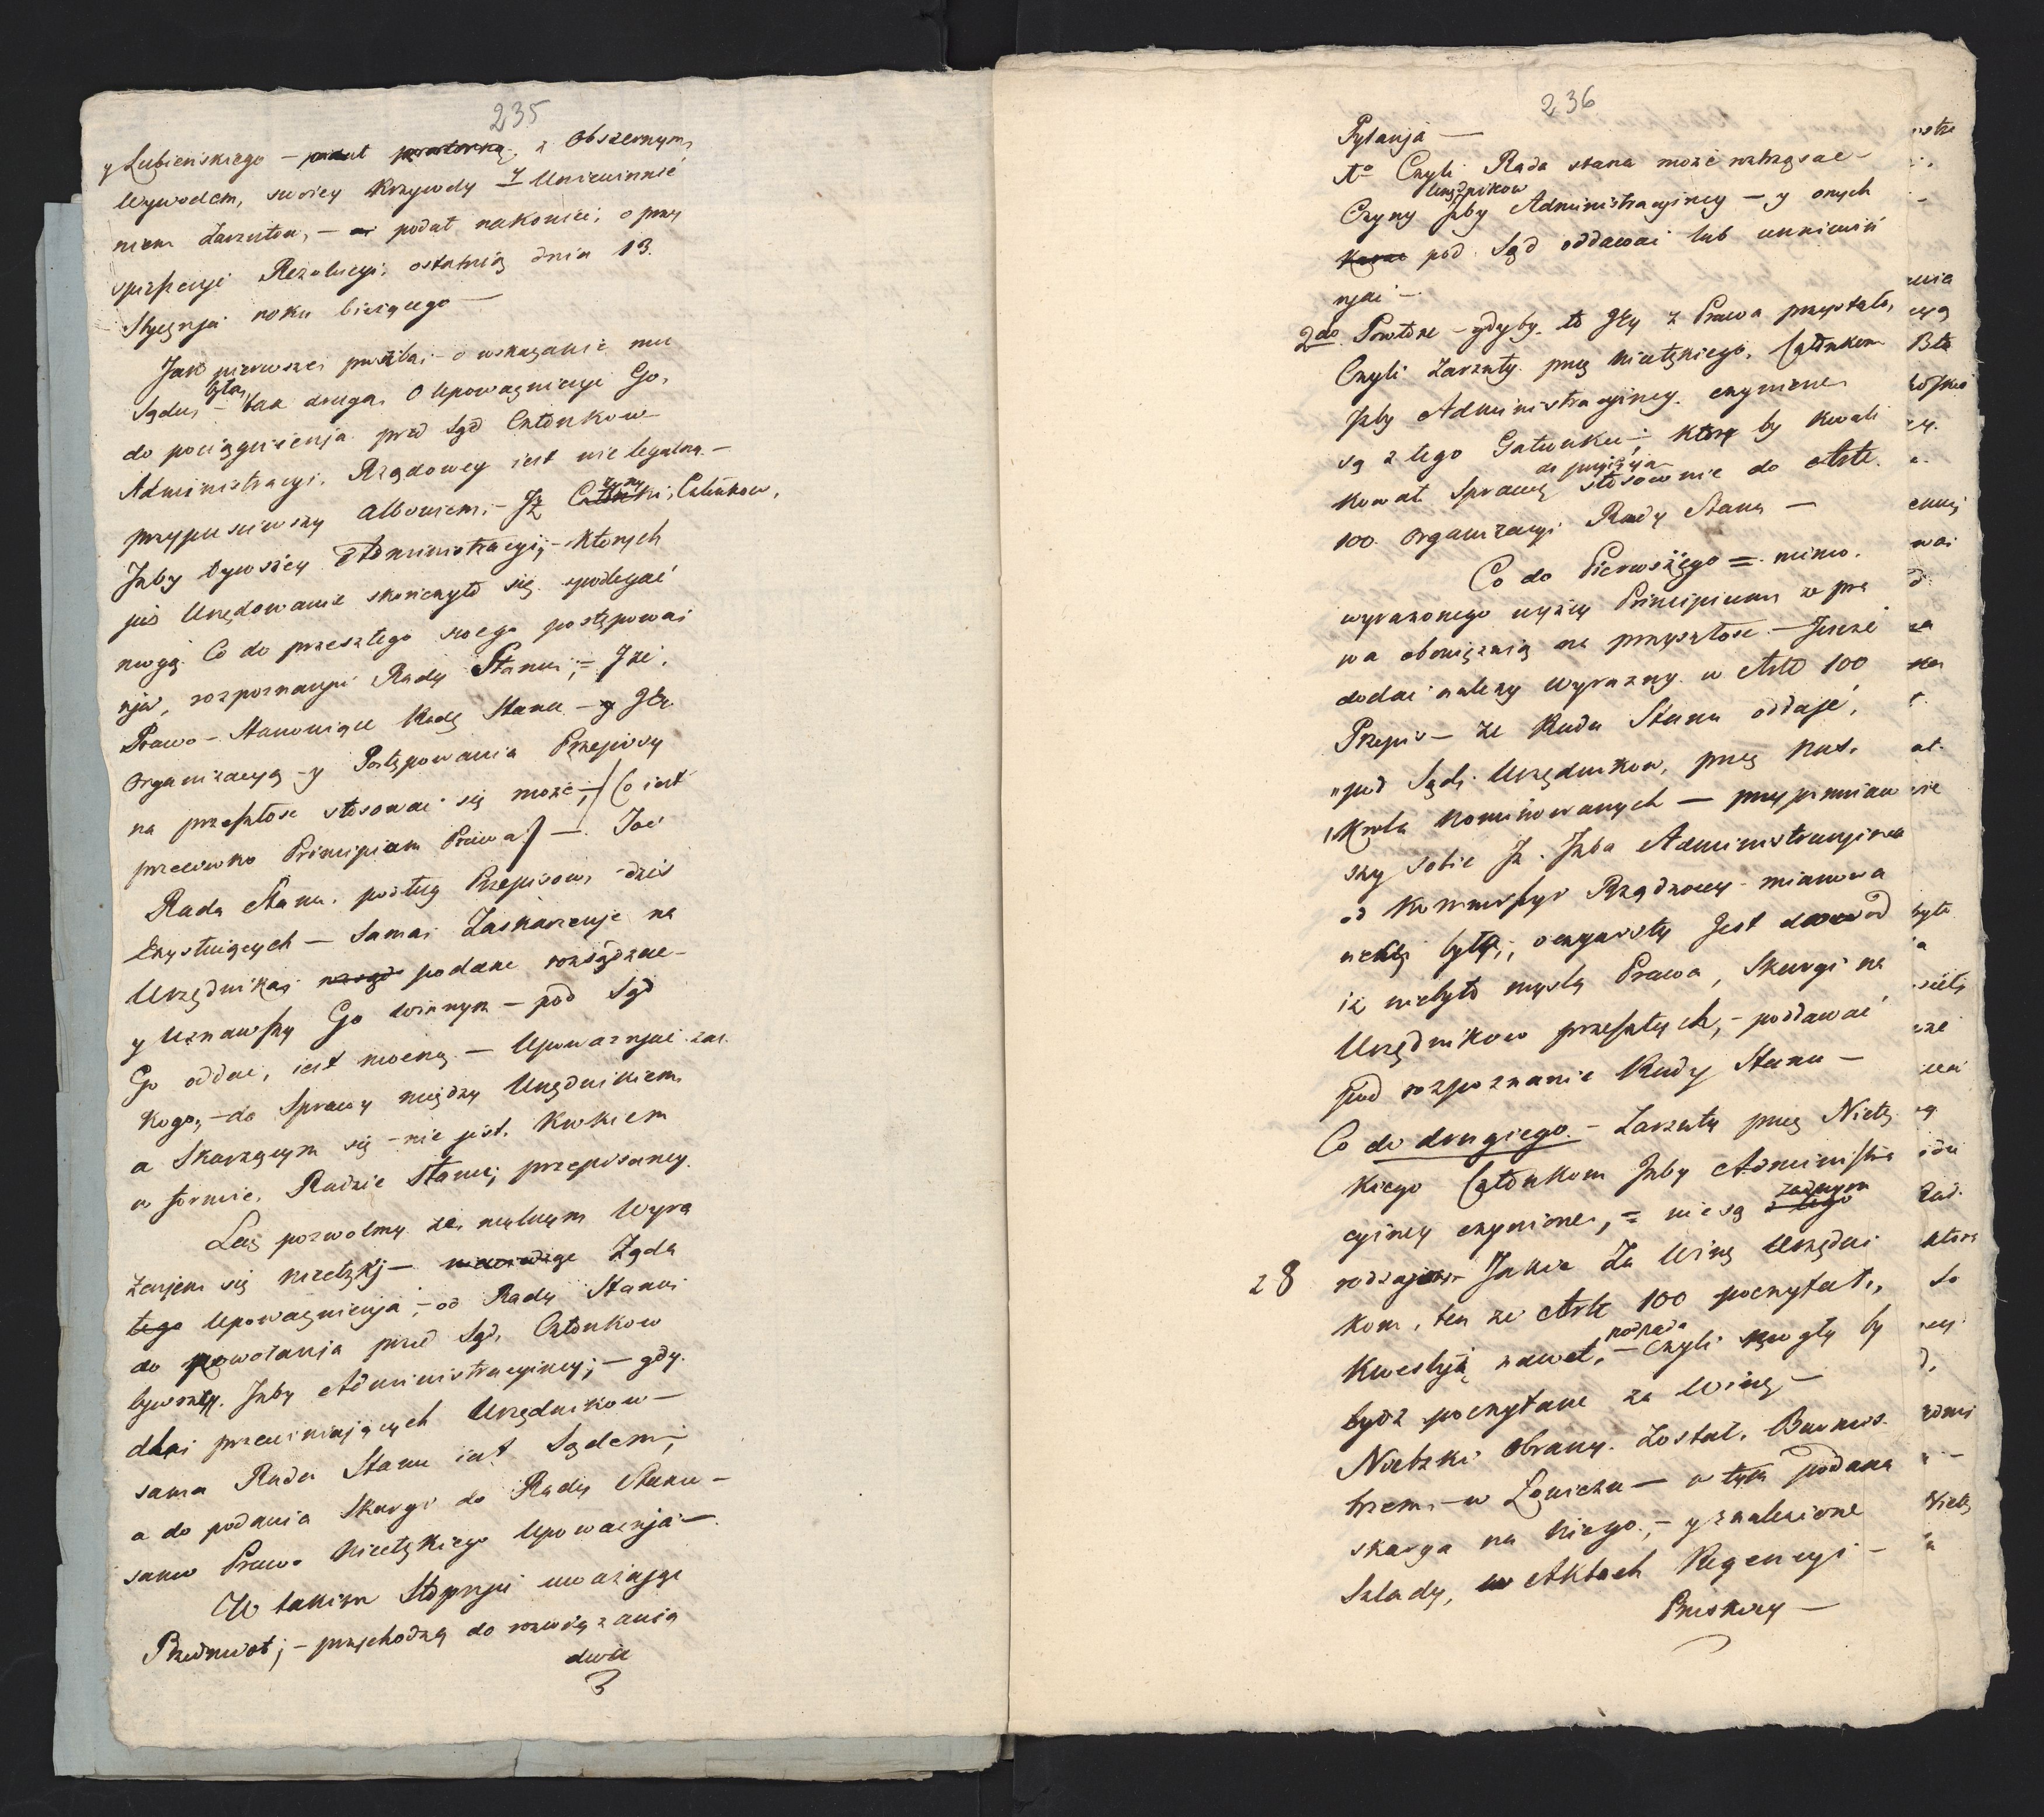 235
y Łubieńskiego – z Obszernym
Wywodem, swoiey Krzywdy y Uniewinnie
niem Zarzutow, – podał nakoniec, o przy
spieszenie Rezolucyi, ostatnią dnia 13.
Stycznia roku bieżącego –
Jak pierwsza prożba, – o wskazanie mu
Sądu, była – tak druga, O Upoważnienje Go,
do pociągnienja przed Sąd Członkow
Administracyi, Rządowey iest nie legalną –
przypusciwszy albowiem, – Iż Czyny Członkow,
Izby bywszey Administracyi, – ktorych
już Urzędowanie skończyło się podlegać
mogą Co do przeszłego swego postępowa
nja, rozpoznanju Rady Stanu, = Iże,
Prawo – Stanowiące Radę Stanu – y Jey
Organizacyą – y Postępowania Przepisy
na przeszłosc stosować się może, / Co iest
przeciwko Principiom Prawa / – To
Rada Stanu, podług Przepisow – dziś
Exystuiących – Sama, Zaskarżenje na
Urzędnika, podane rozsądzać –
y Uznawszy Go winnym – pod Sąd
Go oddać, iest mocną – Upoważnjać zaś
Kogo, – do Sprawy między Urzędnikiem
a Skarzącym się – nie jest, Krokiem
w formie, Radzie Stanu, przepisaney.
Lecz pozwolmy że, mylnym Wyra
żenjem się Nieetzkj – Żąda
Upoważnienja, – od Rady Stanu
do powołanja przed Sąd, Członkow
bywszey Izby Administracyiney; – gdy
dla przewiniających Urzędnikow –
sama Rada Stanu iest Sądem;
a do podania Skargi do Rady Stanu –
samo Prawo Nieetzkiego Upoważnja –
W takim Stopnju uważając
Przedmiot; – przychodzą do rozwiązania
dwa
236
Pytanja –
1o Czyli Rada stanu może roztrząsac –
Czyny Urzędnikow Izby Administracyiney – y onych
pod Sąd oddawać lub uniewin
njać –
2do Powtore – gdyby to Jey z Prawa przystało,
Czyli Zarzuty przez Nieetzkiego, Członkom
Izby Administracyiney czynione
są z tego Gatunku, ktore by kwali
kowali Sprawę do przyięcia stosownie do Artu
100 Organizacyi Rady Stanu –
Co do Pierwszego = mimo
wyrażonego wyżey Principium że pra
wo obowiązuią na przyszłosc – Jeszcze
dodać należy wyrazny w Arto 100
Przepis – że Rada Stanu oddaje,
„pod Sąd, Urzędnikow, przez Nas,
„Krola Nominowanych – przypomniaw
szy sobie Iż Izba Administracyina
od Kommissyi Rządzącey – mianowa
ną była, oczywisty Jest dowod
iż niebyło myslą Prawa, Skargi na
Urzędnikow przeszłych, – poddawać
pod rozpoznanie Rady Stanu –
Co do drugiego – Zarzuty przez Nietz
kiego Członkom Izby Administra
cyiney czynione, = nie są żadnym
28 rodzajem Jakie Za Winę Urzędni
kom, ten że Art 100 poczytał,
Kwestyą nawet, podpada – Czyli mogły by
bydz poczytane za Winę –
Nietzki Obrany Został, Burmis
trzem – w Łowiczu – w tym podana
skarga na Niego, – y znalezione
Szlady, w Aktach Regencyi –
Pruskiey –